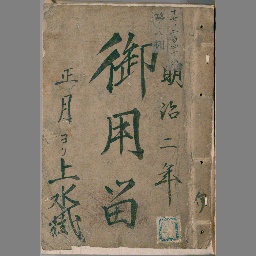 明治二年
御用留
正月ヨリ
上水掛